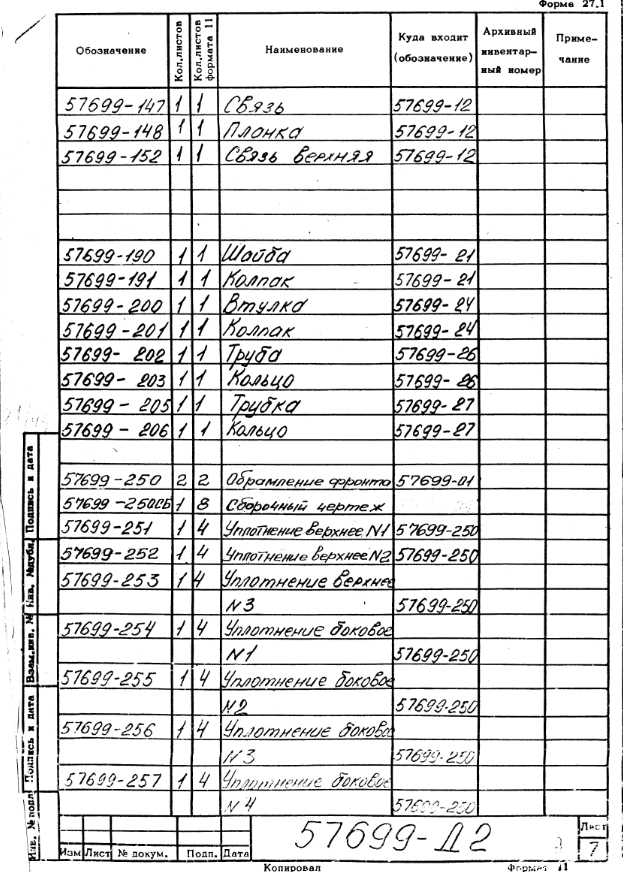 Форма 27.1
Обозначение Кол.листов Кол.листов формата 11 Наименование Куда входит (обозначение) Архивный инвентар- ный номер Приме- чание
57699-147 1 1 Связь 57699-12
57699-148 1 1 Планка 57699-12
57699-152 1 1 Связь верхняя 57699-12
57699-190 1 1 Шайба 57699-21
57699-191 1 1 Колпак 57699-21
57699-200 1 1 Втулка 57699-24
57699-201 1 1 Колпак 57699-24
57699-202 1 1 Труба 57699-26
57699-203 1 1 Кольцо 57699-26
57699-205 1 1 Трубка 57699-27
57699-206 1 1 Кольцо 57699-27
57699-250 2 2 Обрамление фронта 57699-01
57699-250СБ 1 8 Сборочный чертеж
57699-251 1 4 Уплотнение верхнее N1 57699-250
57699-252 1 4 Уплотнение верхнее N2 57699-250
57699-253 1 4 Уплотнение верхнее
N3 57699-250
57699-254 1 4 Уплотнение боковое
N1 57699-250
57699-255 1 4 Уплотнение боковое
N2 57699-250
57699-256 1 4 Уплотнение боковое
N3 57699-250
57699-257 1 4 Уплотнение боковое
N4 57699-250
Инв. № подл Подпись и дата Взам.инв. № Инв. №дубл. Подпись и дата
57699-Д2
Лист
7
Изм Лист № докум. Подп. Дата
Копировал Формат 11